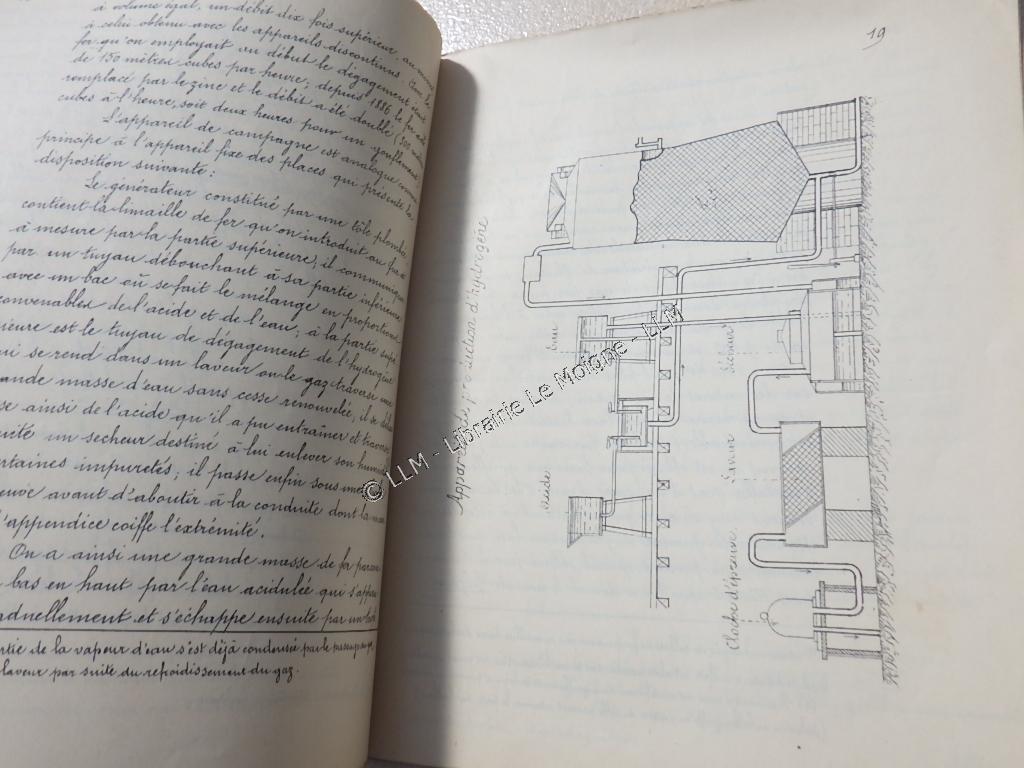 à volume égal, un débit dix fois supérieur au moins
à celui obtenu avec les appareils discontinus. Avec le
fer qu'on employait au début le dégagement était
de 150 mètres cubes par heure; depuis 1886 le fer a été
remplacé par le zinc et le débit a été doublé (300 mètres
cubes à l'heure, soit deux heures pour un gonflement
L'appareil de campagne est analogue comme
principe à l'appareil fixe des places qui présente la
disposition suivante:
Le générateur constitué par une tôle plombée,
contient la limaille de fer qu'on introduit au fur
à mesure par la partie supérieure; il communique
par un tuyau débouchant à sa partie inférieure,
avec un bac où se fait le mélange en proportions
convenables de l'acide et de l'eau; à la partie supé
rieure est le tuyau de dégagement de l'hydrogène
qui se rend dans un laveur où le gaz traverse une
grande masse d'eau sans cesse renouvelée, il se
se ainsi de l'acide qu'il a pu entraîner et traverse
suite un secheur destiné à lui enlever son humidité
certaines impuretés; il passe enfin sous une
avant d'aboutir à la conduite dont la
l'appendice coiffe l'extrémité.
On a ainsi une grande masse de fer
bas en haut par l'eau acidulée qui
graduellement et s'échappe ensuite par un
partie de la vapeur d'eau s'est déjà condensée par le passage
laveur par suite du refroidissement du gaz.
19
Appareil de production d'hydrogène
Acide
Eau
Sécheur
Laveur
Cloche d'épreuve
© LLM - Librairie Le Moigne - LLM